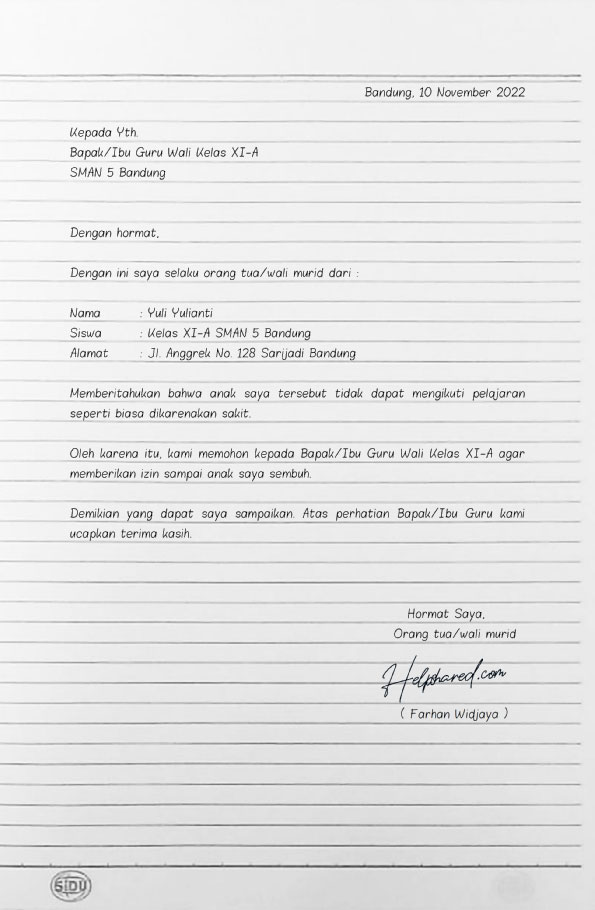 Bandung, 10 November 2022
Kepada Yth.
Bapak/Ibu Guru Wali Kelas XI-A
SMAN 5 Bandung
Dengan hormat,
Dengan ini saya selaku orang tua/wali murid dari :
Nama : Yuli Yulianti
Siswa : Kelas XI-A SMAN 5 Bandung
Alamat : Jl. Anggrek No. 128 Sarijadi Bandung
Memberitahukan bahwa anak saya tersebut tidak dapat mengikuti pelajaran
seperti biasa dikarenakan sakit.
Oleh karena itu, kami memohon kepada Bapak/Ibu Guru Wali Kelas XI-A agar
memberikan izin sampai anak saya sembuh.
Demikian yang dapat saya sampaikan. Atas perhatian Bapak/Ibu Guru kami
ucapkan terima kasih.
Hormat Saya,
Orang tua/wali murid
Helpshared.com
( Farhan Widjaya )
SIDU